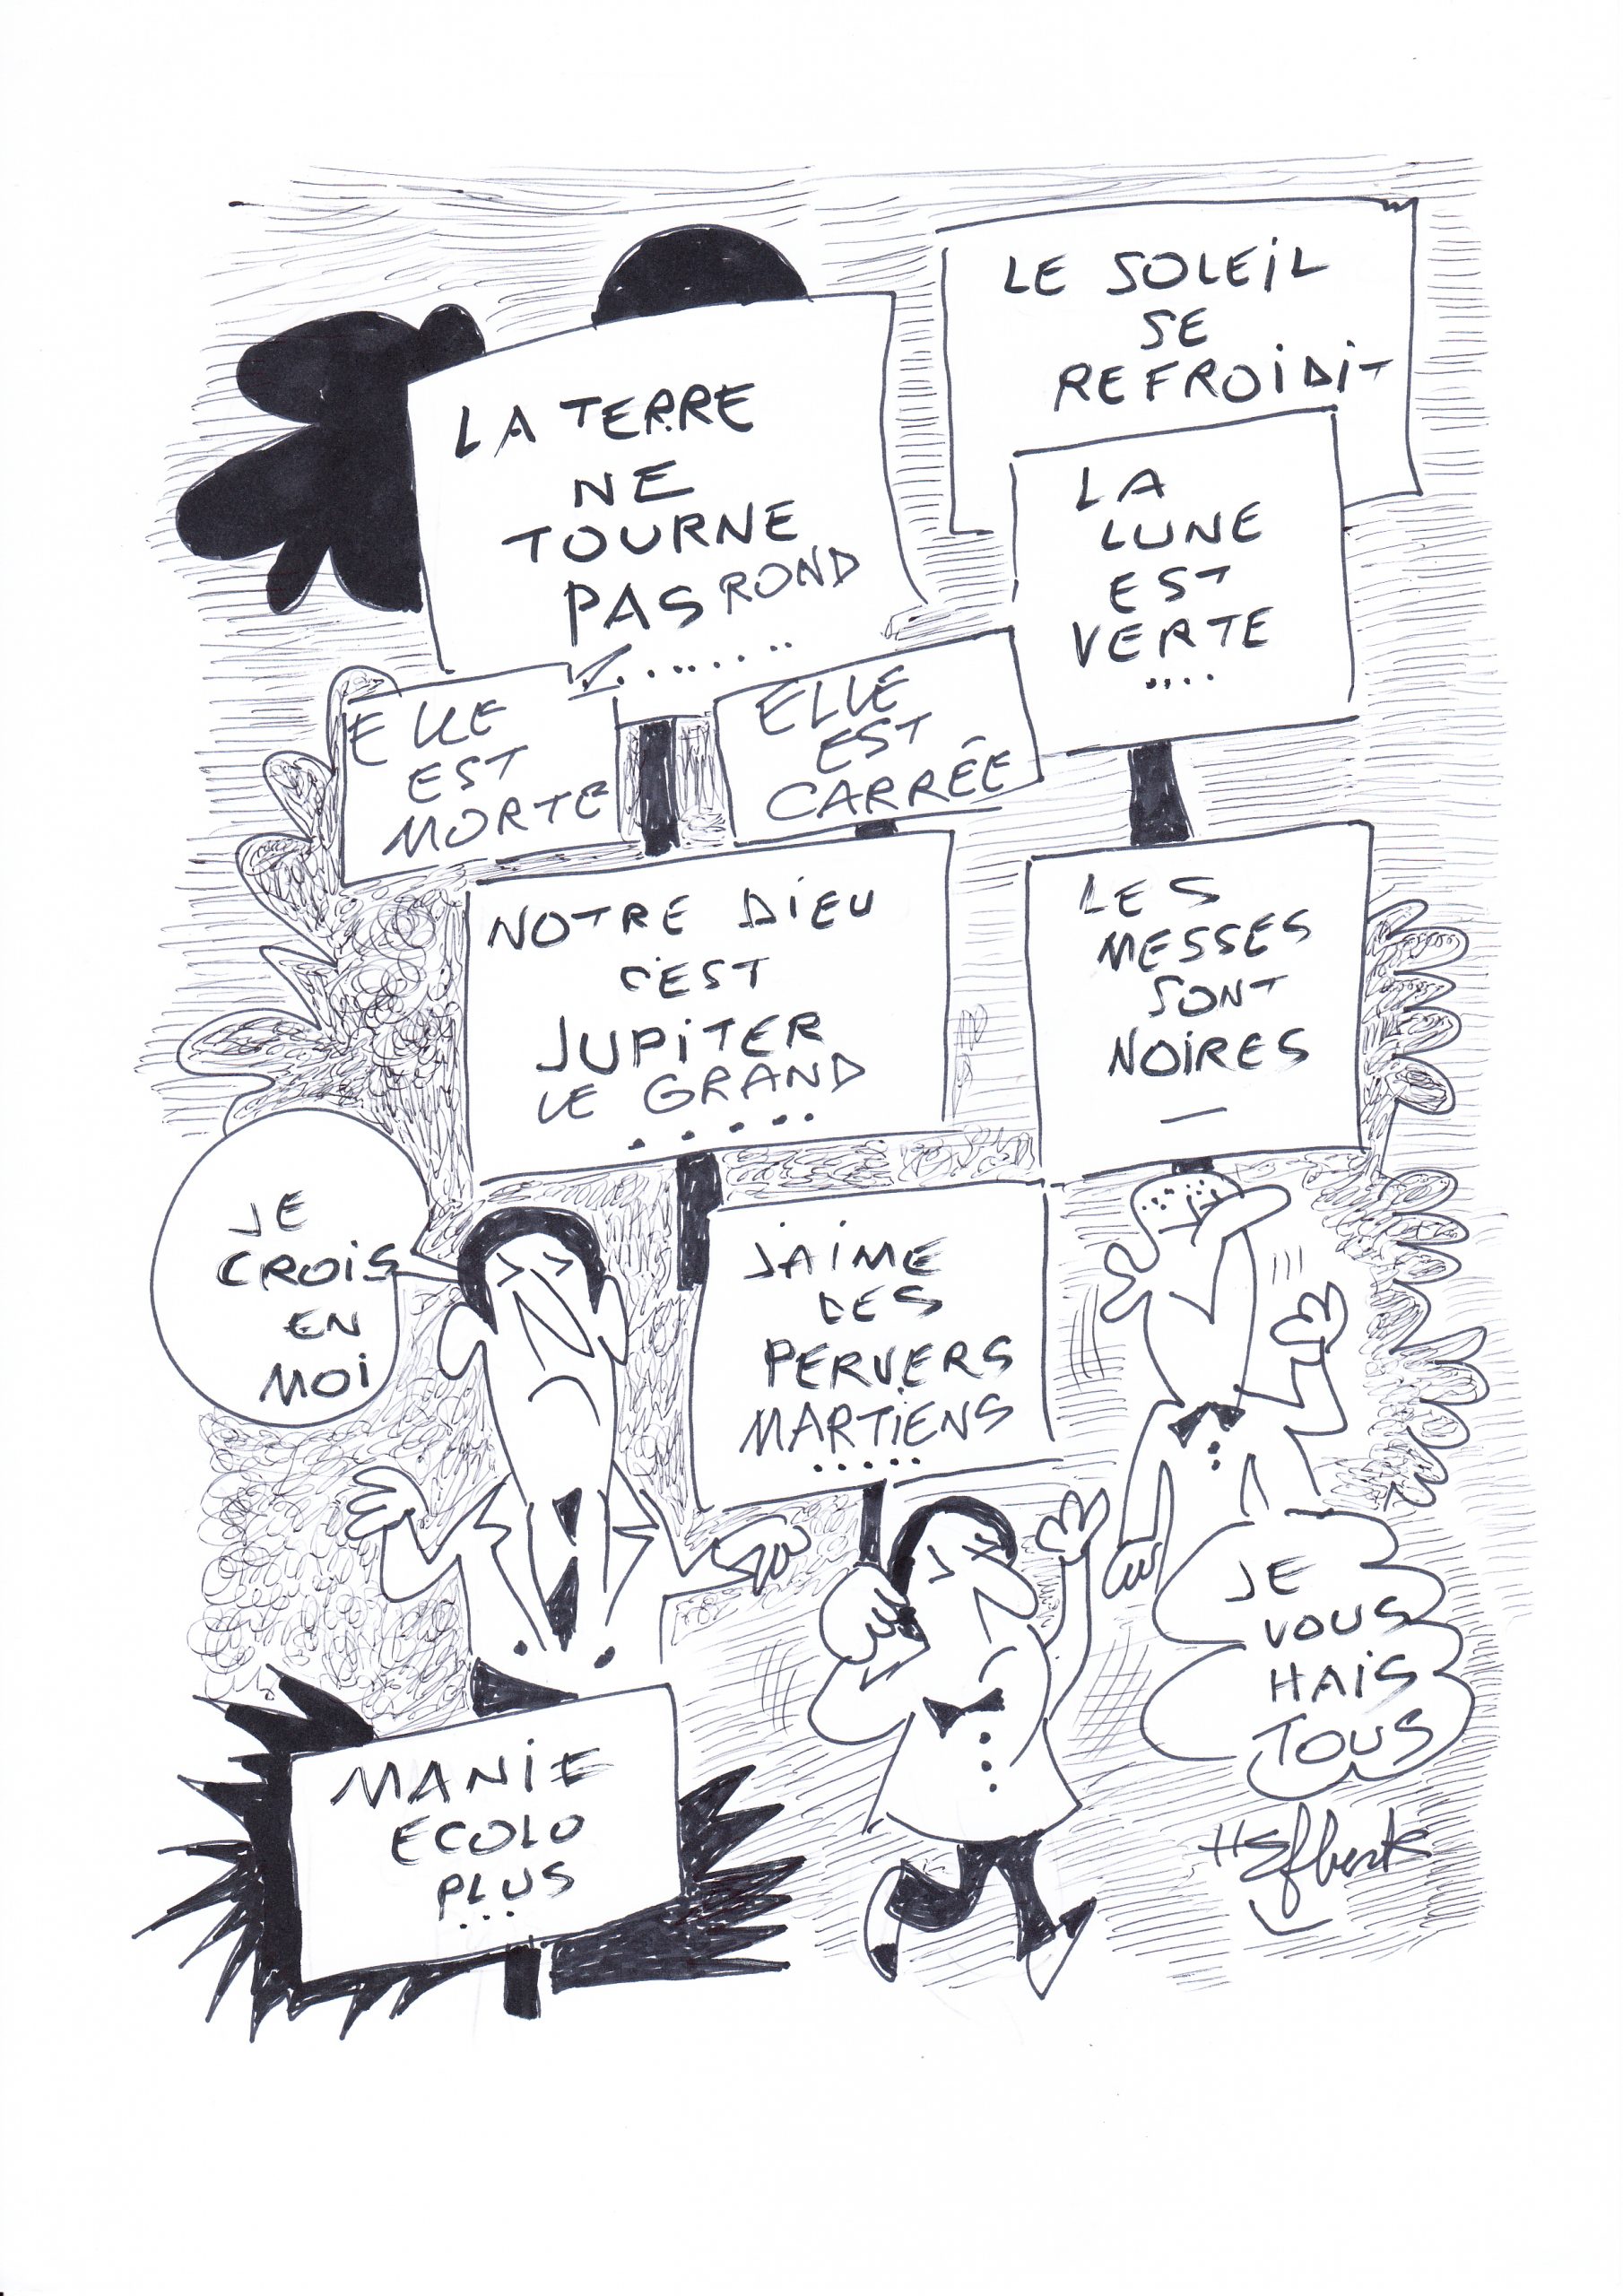 LE SOLEIL
SE
REFROIDIT
LA TERRE
NE
TOURNE
PAS ROND
.......
LA
LUNE
EST
VERTE
....
ELLE
EST
MORTE
ELLE
EST
CARRÉE
NOTRE DIEU
C'EST
JUPITER
LE GRAND
.....
LES
MESSES
SONT
NOIRES
JE
CROIS
EN
MOI
J'AIME
DES
PERVERS
MARTIENS
.....
JE
VOUS
HAIS
TOUS
MANIE
ECOLO
PLUS
...